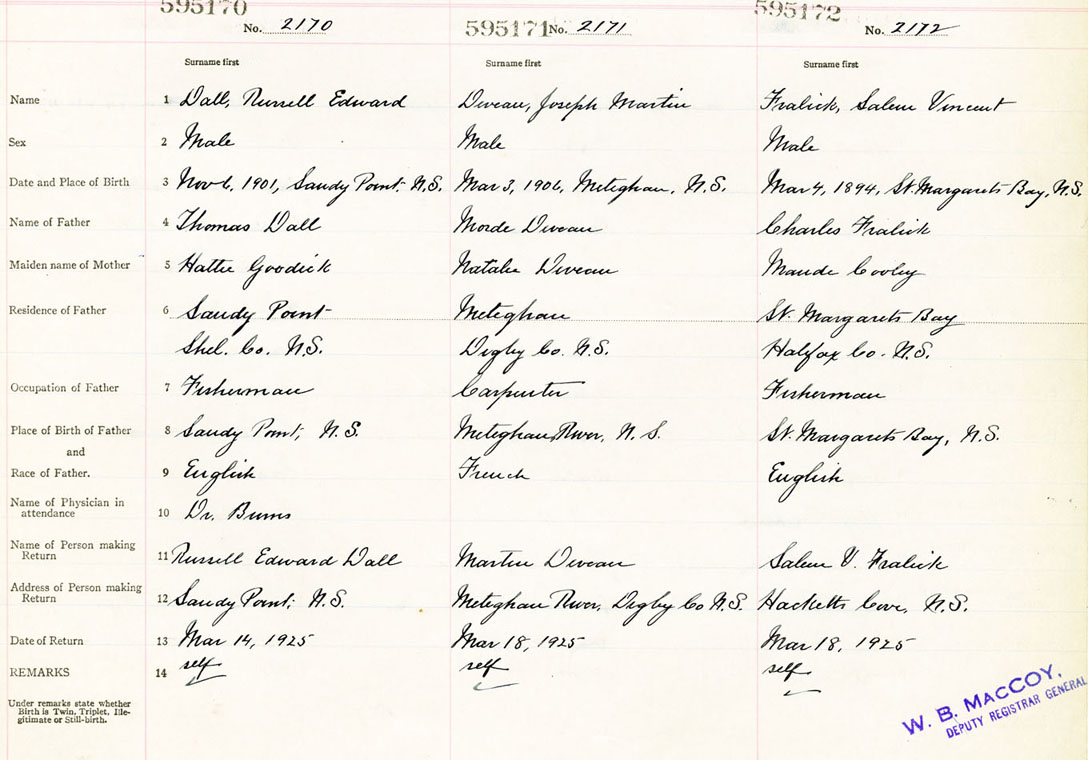 595170 595171 595172
No. 2170 No. 2171 No. 2172
Surname first Surname first Surname first
Name 1 Dall, Russell Edward Deveau, Joseph Martin Fralick, Salem Vincent
Sex 2 Male Male Male
Date and Place of Birth 3 Nov 6, 1901, Sandy Point N.S. Mar 3, 1906, Meteghan, N.S. Mar 4, 1894, St. Margarets Bay, N.S.
Name of Father 4 Thomas Dall Morde Deveau Charles Fralick
Maiden name of Mother 5 Hattie Goodick Natalie Deveau Maude Cooley
Residence of Father 6 Sandy Point Meteghan St. Margarets Bay
Shel. Co. N.S. Digby Co. N.S. Halifax Co. N.S.
Occupation of Father 7 Fisherman Carpenter Fisherman
Place of Birth of Father 8 Sandy Point, N.S. Meteghan River, N.S. St. Margarets Bay, N.S.
and
Race of Father. 9 English French English
Name of Physician in
attendance 10 Dr. Burns
Name of Person making
Return 11 Russell Edward Dall Martin Deveau Salem V. Fralick
Address of Person making
Return 12 Sandy Point, N.S. Meteghan River, Digby Co N.S. Hacketts Cove, N.S.
Date of Return 13 Mar 14, 1925 Mar 18, 1925 Mar 18, 1925
REMARKS 14 self self self
Under remarks state whether
Birth is Twin, Triplet, Ille-
gitimate or Still-birth.
W. B. MACCOY,
DEPUTY REGISTRAR GENERAL